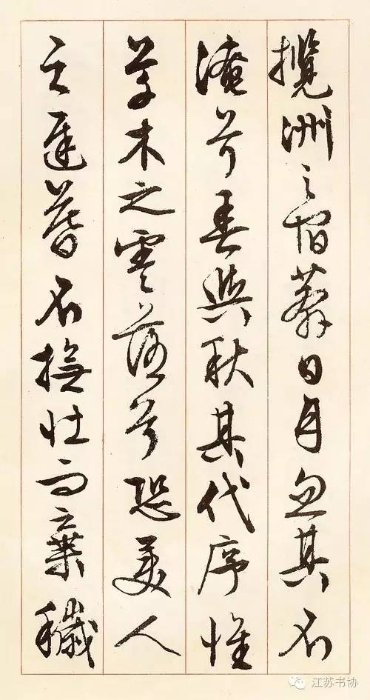 攬洲之宿莽日月忽其不
淹兮春與秋其代序惟
草木之零落兮恐美人
之遲暮不撫壯而棄穢
江苏书协